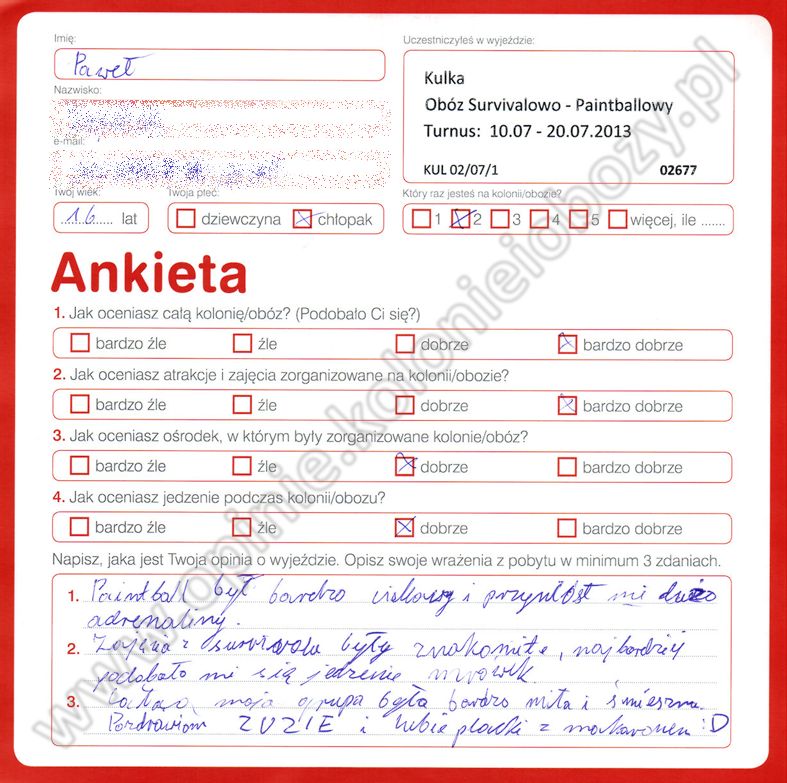 Imię:
Paweł
Nazwisko:
e-mail:
Twój wiek:
16 lat
Twoja płeć:
dziewczyna chłopak
Uczestniczyłeś w wyjeździe:
Kulka
Obóz Survivalowo - Paintballowy
Turnus: 10.07 - 20.07.2013
KUL 02/07/1 02677
Który raz jesteś na kolonii/obozie?
1 2 3 4 5 więcej, ile .......
Ankieta
1. Jak oceniasz całą kolonię/obóz? (Podobało Ci się?)
bardzo źle źle dobrze bardzo dobrze
2. Jak oceniasz atrakcje i zajęcia zorganizowane na kolonii/obozie?
bardzo źle źle dobrze bardzo dobrze
3. Jak oceniasz ośrodek, w którym były zorganizowane kolonie/obóz?
bardzo źle źle dobrze bardzo dobrze
4. Jak oceniasz jedzenie podczas kolonii/obozu?
bardzo źle źle dobrze bardzo dobrze
Napisz, jaka jest Twoja opinia o wyjeździe. Opisz swoje wrażenia z pobytu w minimum 3 zdaniach.
1. Paintball był bardzo i przyniósł mi dużo
adrenaliny.
2. Zajęcia z survivalu były znakomite, najbardziej
podobało mi się jedzenie mrówek.
3. moja grupa była bardzo miła i śmieszna.
Pozdrawiam ZUZIE i lubie placki z makaronem :D
www.opinie.kolonieiobozy.pl